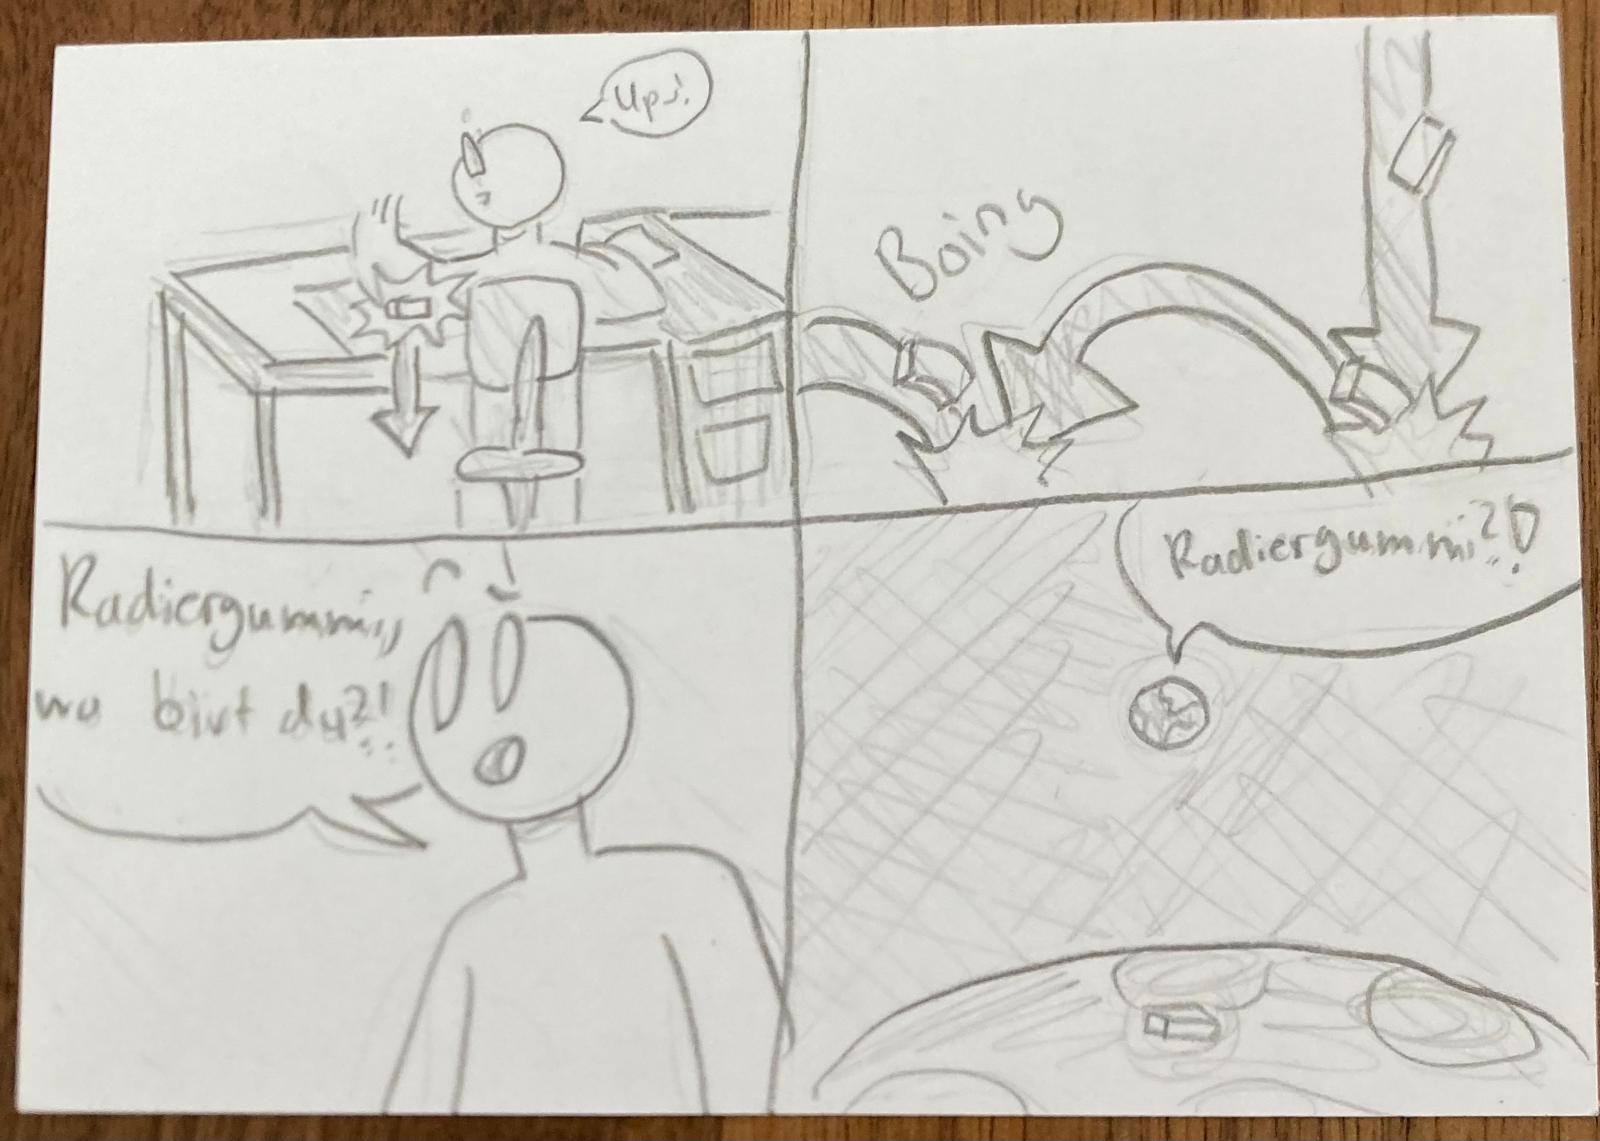 Ups!
Boing
Radiergummi,
wo bist du?!
Radiergummi?!